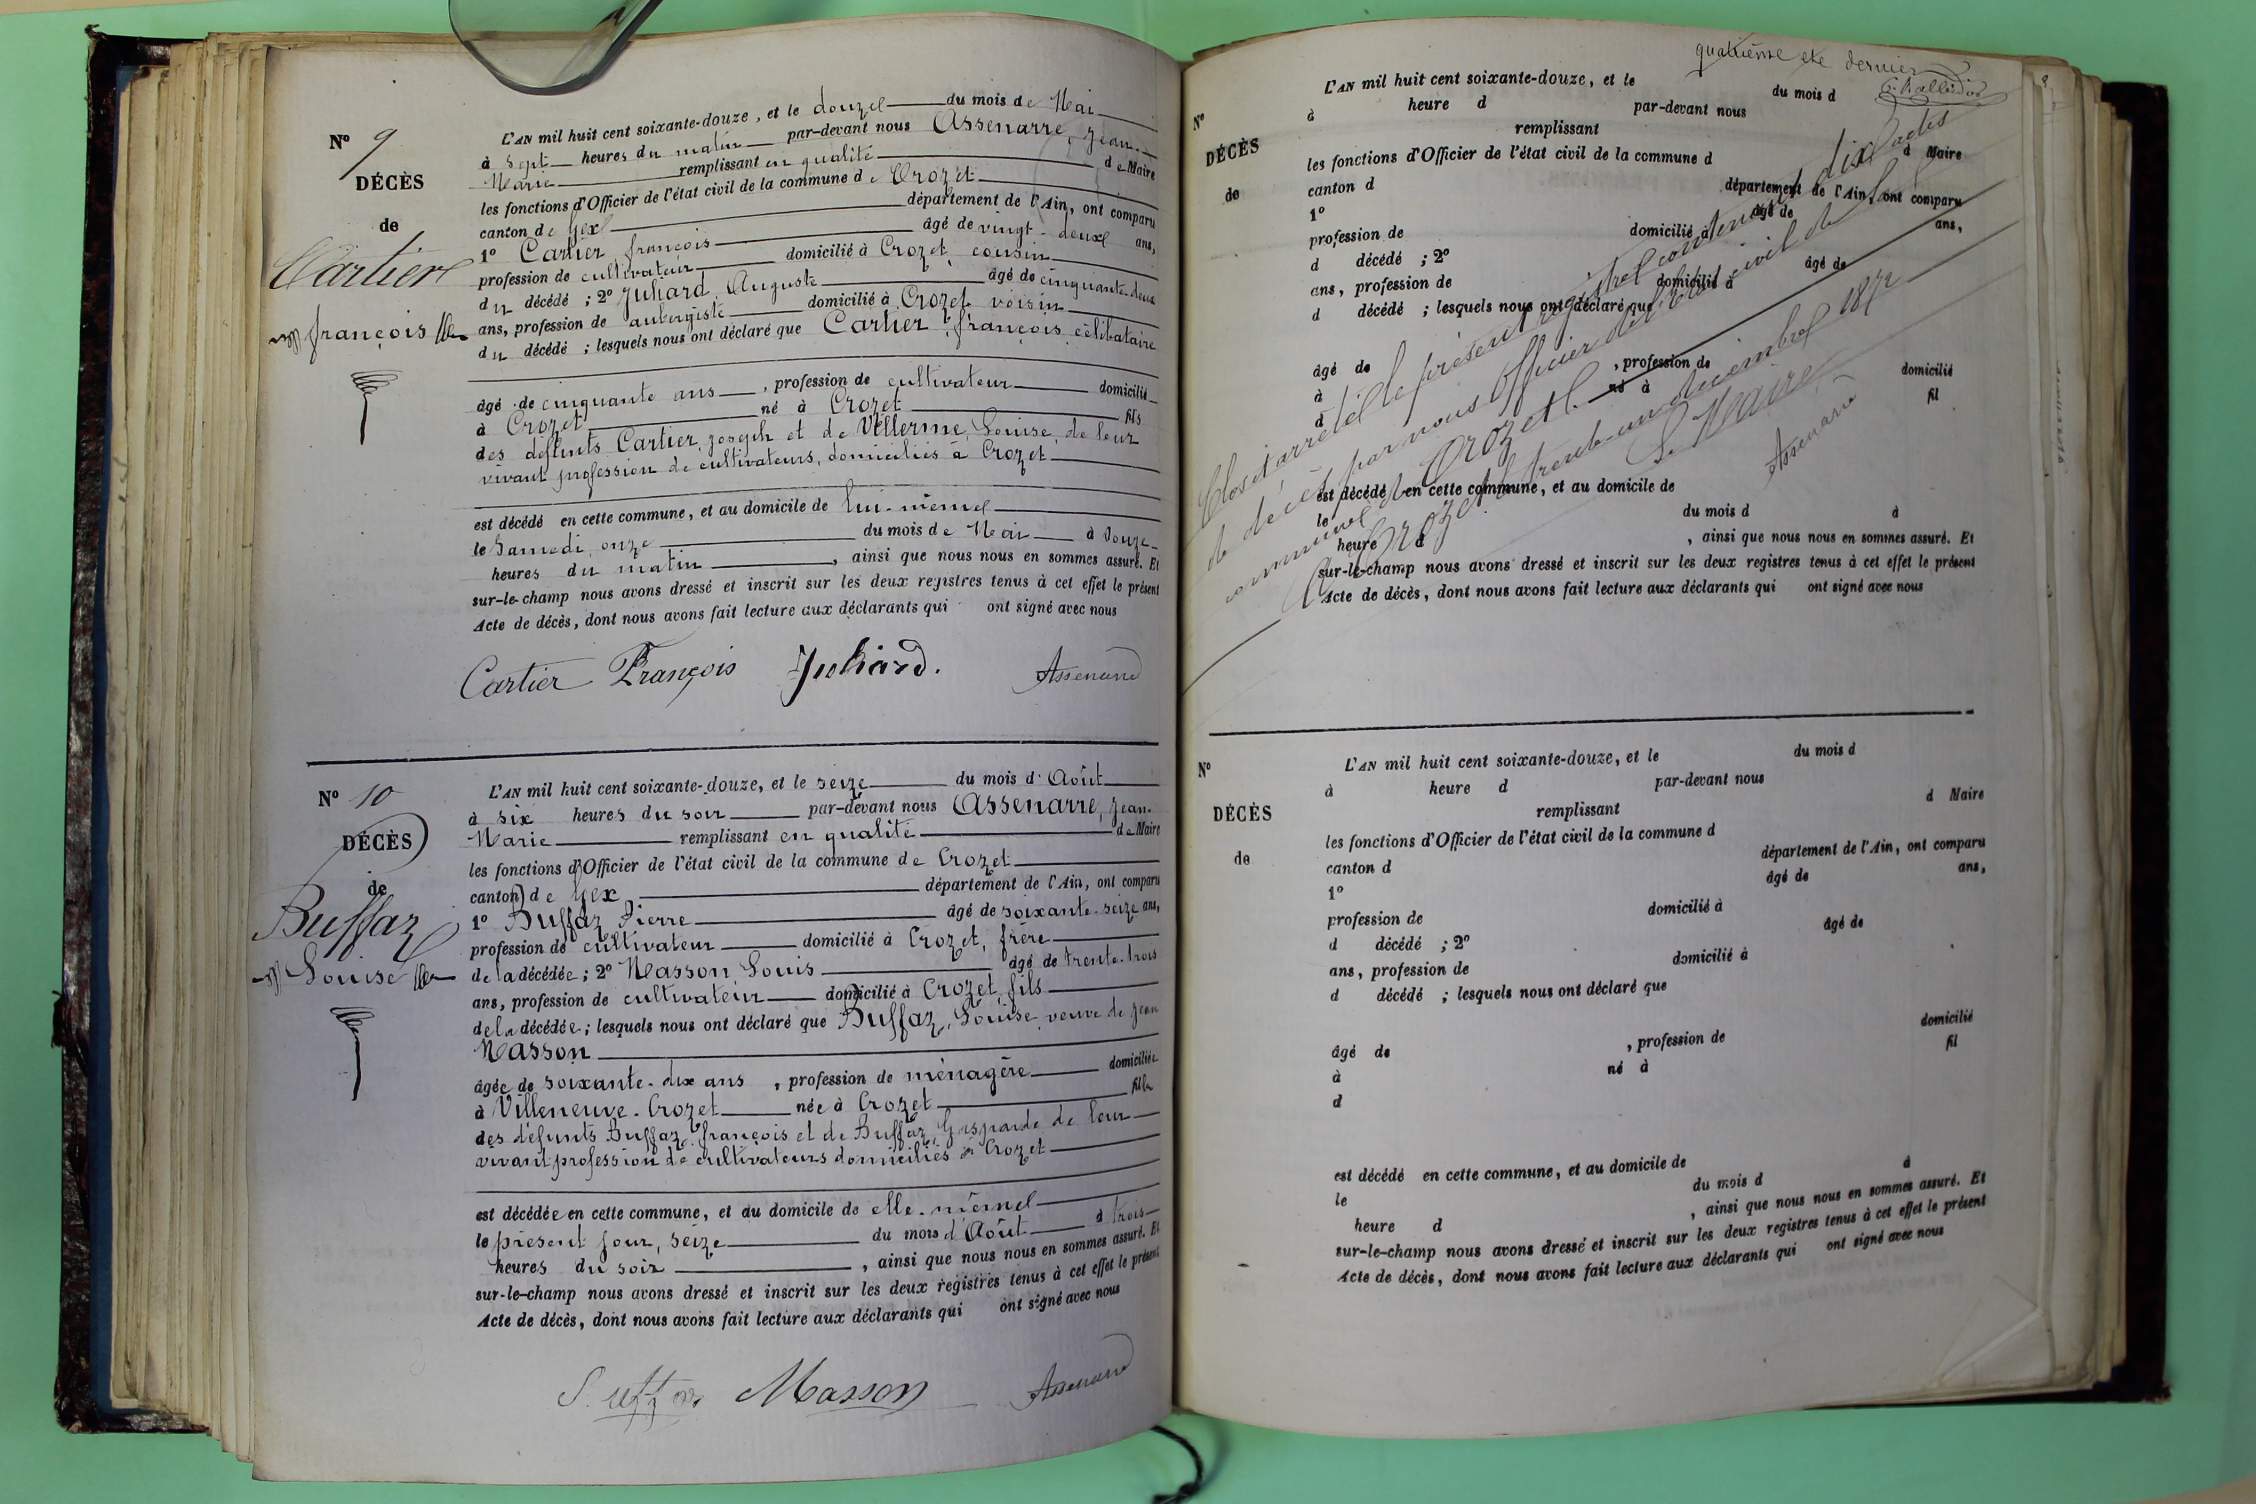 N° 9
DÉCÈS
de
Cartier
françois
L'AN mil huit cent soixante-douze, et le douze du mois de Mai
à sept heures du matin par-devant nous Assenarre, Jean-
Marie remplissant en qualité de Maire
les fonctions d'Officier de l'état civil de la commune de Crozet
canton de Gex département de l'Ain, ont comparu
1° Cartier françois âgé de vingt-deux ans,
profession de cultivateur domicilié à Crozet, cousin
du décédé ; 2° Juhard, Auguste âgé de cinquante-deux
ans, profession de aubergiste domicilié à Crozet voisin
du décédé ; lesquels nous ont déclaré que Cartier, françois, célibataire
âgé de cinquante ans, profession de cultivateur domicilié
à Crozet né à Crozet fils
des défunts Cartier, joseph et de Villerme, Louise, de leur
vivant profession de cultivateurs, domiciliés à Crozet
est décédé en cette commune, et au domicile de lui-même
le Samedi, onze du mois de Mai à douze
heures du matin, ainsi que nous nous en sommes assuré. Et
sur-le-champ nous avons dressé et inscrit sur les deux registres tenus à cet effet le présent
Acte de décès, dont nous avons fait lecture aux déclarants qui ont signé avec nous
Cartier François Juhard. Assenarre
N° 10
DÉCÈS
de
Buffaz
Louise
L'AN mil huit cent soixante-douze, et le seize du mois d'Août
à six heures du soir par-devant nous Assenarre, Jean-
Marie remplissant en qualité de Maire
les fonctions d'Officier de l'état civil de la commune de Crozet
canton de Gex département de l'Ain, ont comparu
1° Buffaz Pierre âgé de soixante-seize ans,
profession de cultivateur domicilié à Crozet, frère
de la décédée ; 2° Masson Louis âgé de trente-trois
ans, profession de cultivateur domicilié à Crozet, fils
de la décédée ; lesquels nous ont déclaré que Buffaz, Louise, veuve de Jean
Masson
âgée de soixante-dix ans, profession de ménagère domiciliée
à Villeneuve-Crozet née à Crozet fille
des défunts Buffaz, françois et de Buffaz, Gasparde de leur
vivant profession de cultivateurs domiciliés à Crozet
est décédée en cette commune, et au domicile de elle-même
le présent jour, seize du mois d'Août à trois
heures du soir, ainsi que nous nous en sommes assuré. Et
sur-le-champ nous avons dressé et inscrit sur les deux registres tenus à cet effet le présent
Acte de décès, dont nous avons fait lecture aux déclarants qui ont signé avec nous
Masson Assenarre
quatrième et dernier
N°
DÉCÈS
de
L'AN mil huit cent soixante-douze, et le du mois d
à heure d par-devant nous
remplissant d Maire
les fonctions d'Officier de l'état civil de la commune d
canton d département de l'Ain, ont comparu
1° âgé de ans,
profession de domicilié à
d décédé ; 2° âgé de
ans, profession de domicilié à
d décédé ; lesquels nous ont déclaré que
âgé de , profession de domicilié
à né à fil
d
est décédé en cette commune, et au domicile de
le du mois d à
heure d , ainsi que nous nous en sommes assuré. Et
sur-le-champ nous avons dressé et inscrit sur les deux registres tenus à cet effet le présent
Acte de décès, dont nous avons fait lecture aux déclarants qui ont signé avec nous
Clos et arrêté le présent registre contenant dix actes
de décès par nous Officier de l'état civil de la
commune de Crozet.
Crozet le trente-un décembre 1872
Le Maire
Assenarre
N°
DÉCÈS
de
L'AN mil huit cent soixante-douze, et le du mois d
à heure d par-devant nous
remplissant d Maire
les fonctions d'Officier de l'état civil de la commune d
canton d département de l'Ain, ont comparu
1° âgé de ans,
profession de domicilié à
d décédé ; 2° âgé de
ans, profession de domicilié à
d décédé ; lesquels nous ont déclaré que
âgé de , profession de domicilié
à né à fil
d
est décédé en cette commune, et au domicile de
le du mois d à
heure d , ainsi que nous nous en sommes assuré. Et
sur-le-champ nous avons dressé et inscrit sur les deux registres tenus à cet effet le présent
Acte de décès, dont nous avons fait lecture aux déclarants qui ont signé avec nous